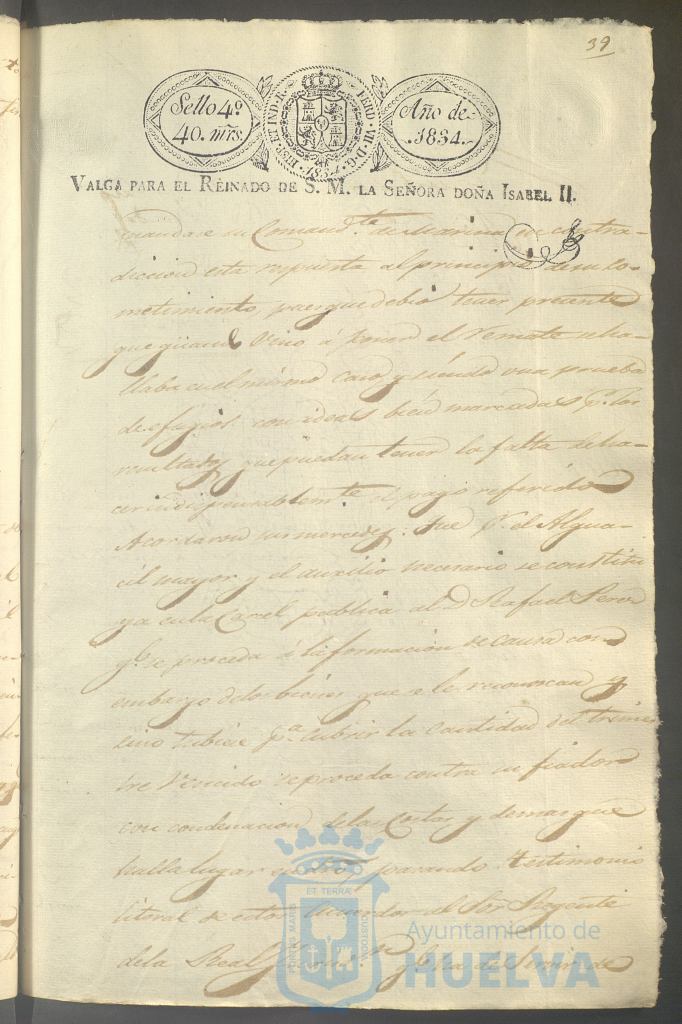 39
Sello 4º
40. mrs.
HISP. ET IND. R. FERD. VII. D. G. 1834
Año de
1834.
VALGA PARA EL REINADO DE S. M. LA SEÑORA DOÑA ISABEL II.
su Comand.te de Marina en contra-
diccion esta repuesta al principio de su co-
metimiento, pues que debio tener presente
que quando vino á poner el remate se ha-
llaba en el mismo caso, y siendo una prueba
de efugios con ideas bien marcadas p.r los
resultados que puedan tener la falta de ha-
cer indispensablem.te el pago referido
Acordaron sus mercedes: Que p.r el Algua-
cil mayor y el auxilio necesario se constitu
ya en la Carcel publica al D Rafael Perez
y se proceda á la formacion de causa con
embargo de los bienes que se le reconoscan y
sino tubiese p.a cubrir la cantidad del trimes
tre vencido se proceda contra su fiador
con condenacion de las Costas y demas que
halla lugar pasando testimonio
literal de estos Acuerdos al Sor Regente
de la Real de
ET TERRA
PORTUS MARIS
CUSTODIA
Ayuntamiento de
HUELVA